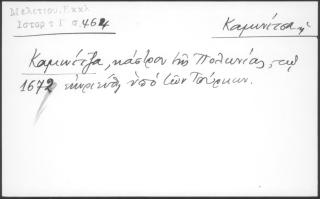 Μελετίου, Εκκλ
Ιστορ τ Γ σ. 464
Καμινίτσα, ἡ
Καμινίτζα, κάστρον τῆς Πολωνίας, τῷ
1672 ἐκυριεύθη ὑπὸ τῶν Τούρκων.